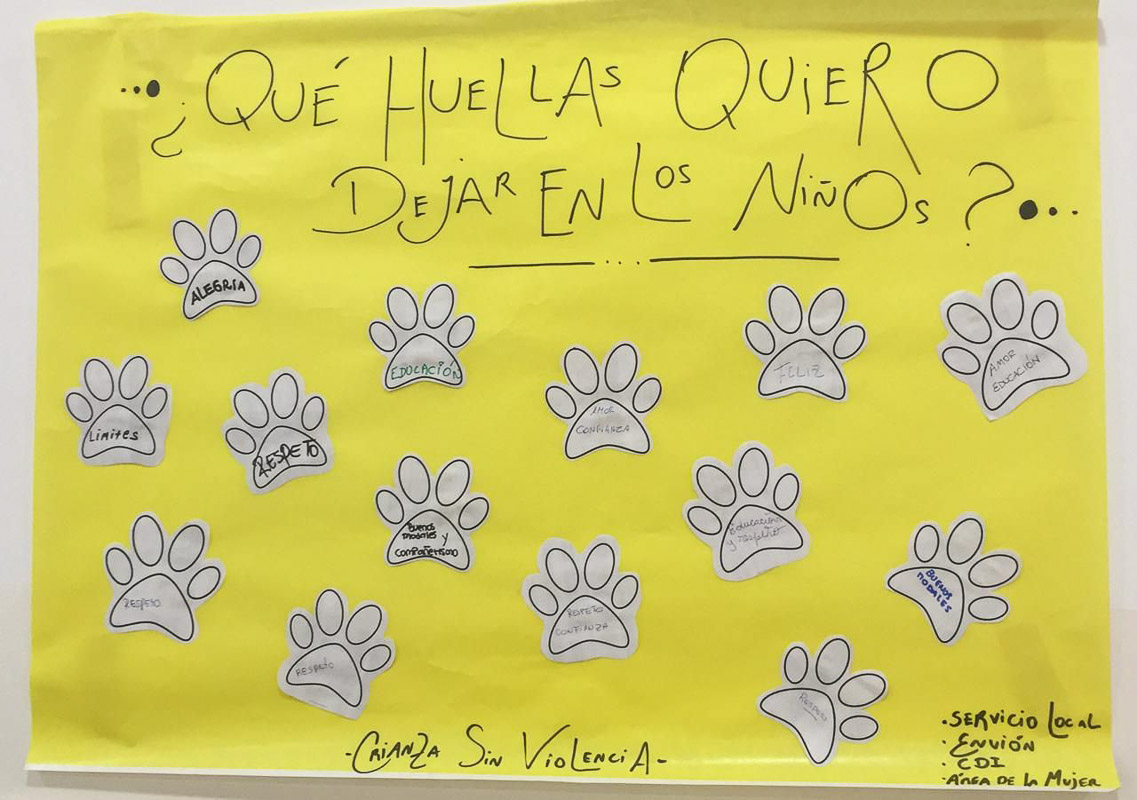 ¿QUÉ HUELLAS QUIERO
DEJAR EN LOS NIÑOS?
ALEGRÍA
EDUCACIÓN
FELIZ
AMOR
EDUCACIÓN
Limites
RESPETO
AMOR
CONFIANZA
Buenos
modales y
compañerismo
Educación
y respeto
RESPETO
RESPETO
CONFIANZA
BUENOS
MODALES
RESPETO
RESPETO
-CRIANZA SIN VIOLENCIA-
·SERVICIO LOCAL
·ENVIÓN
·CDI
·ÁREA DE LA MUJER